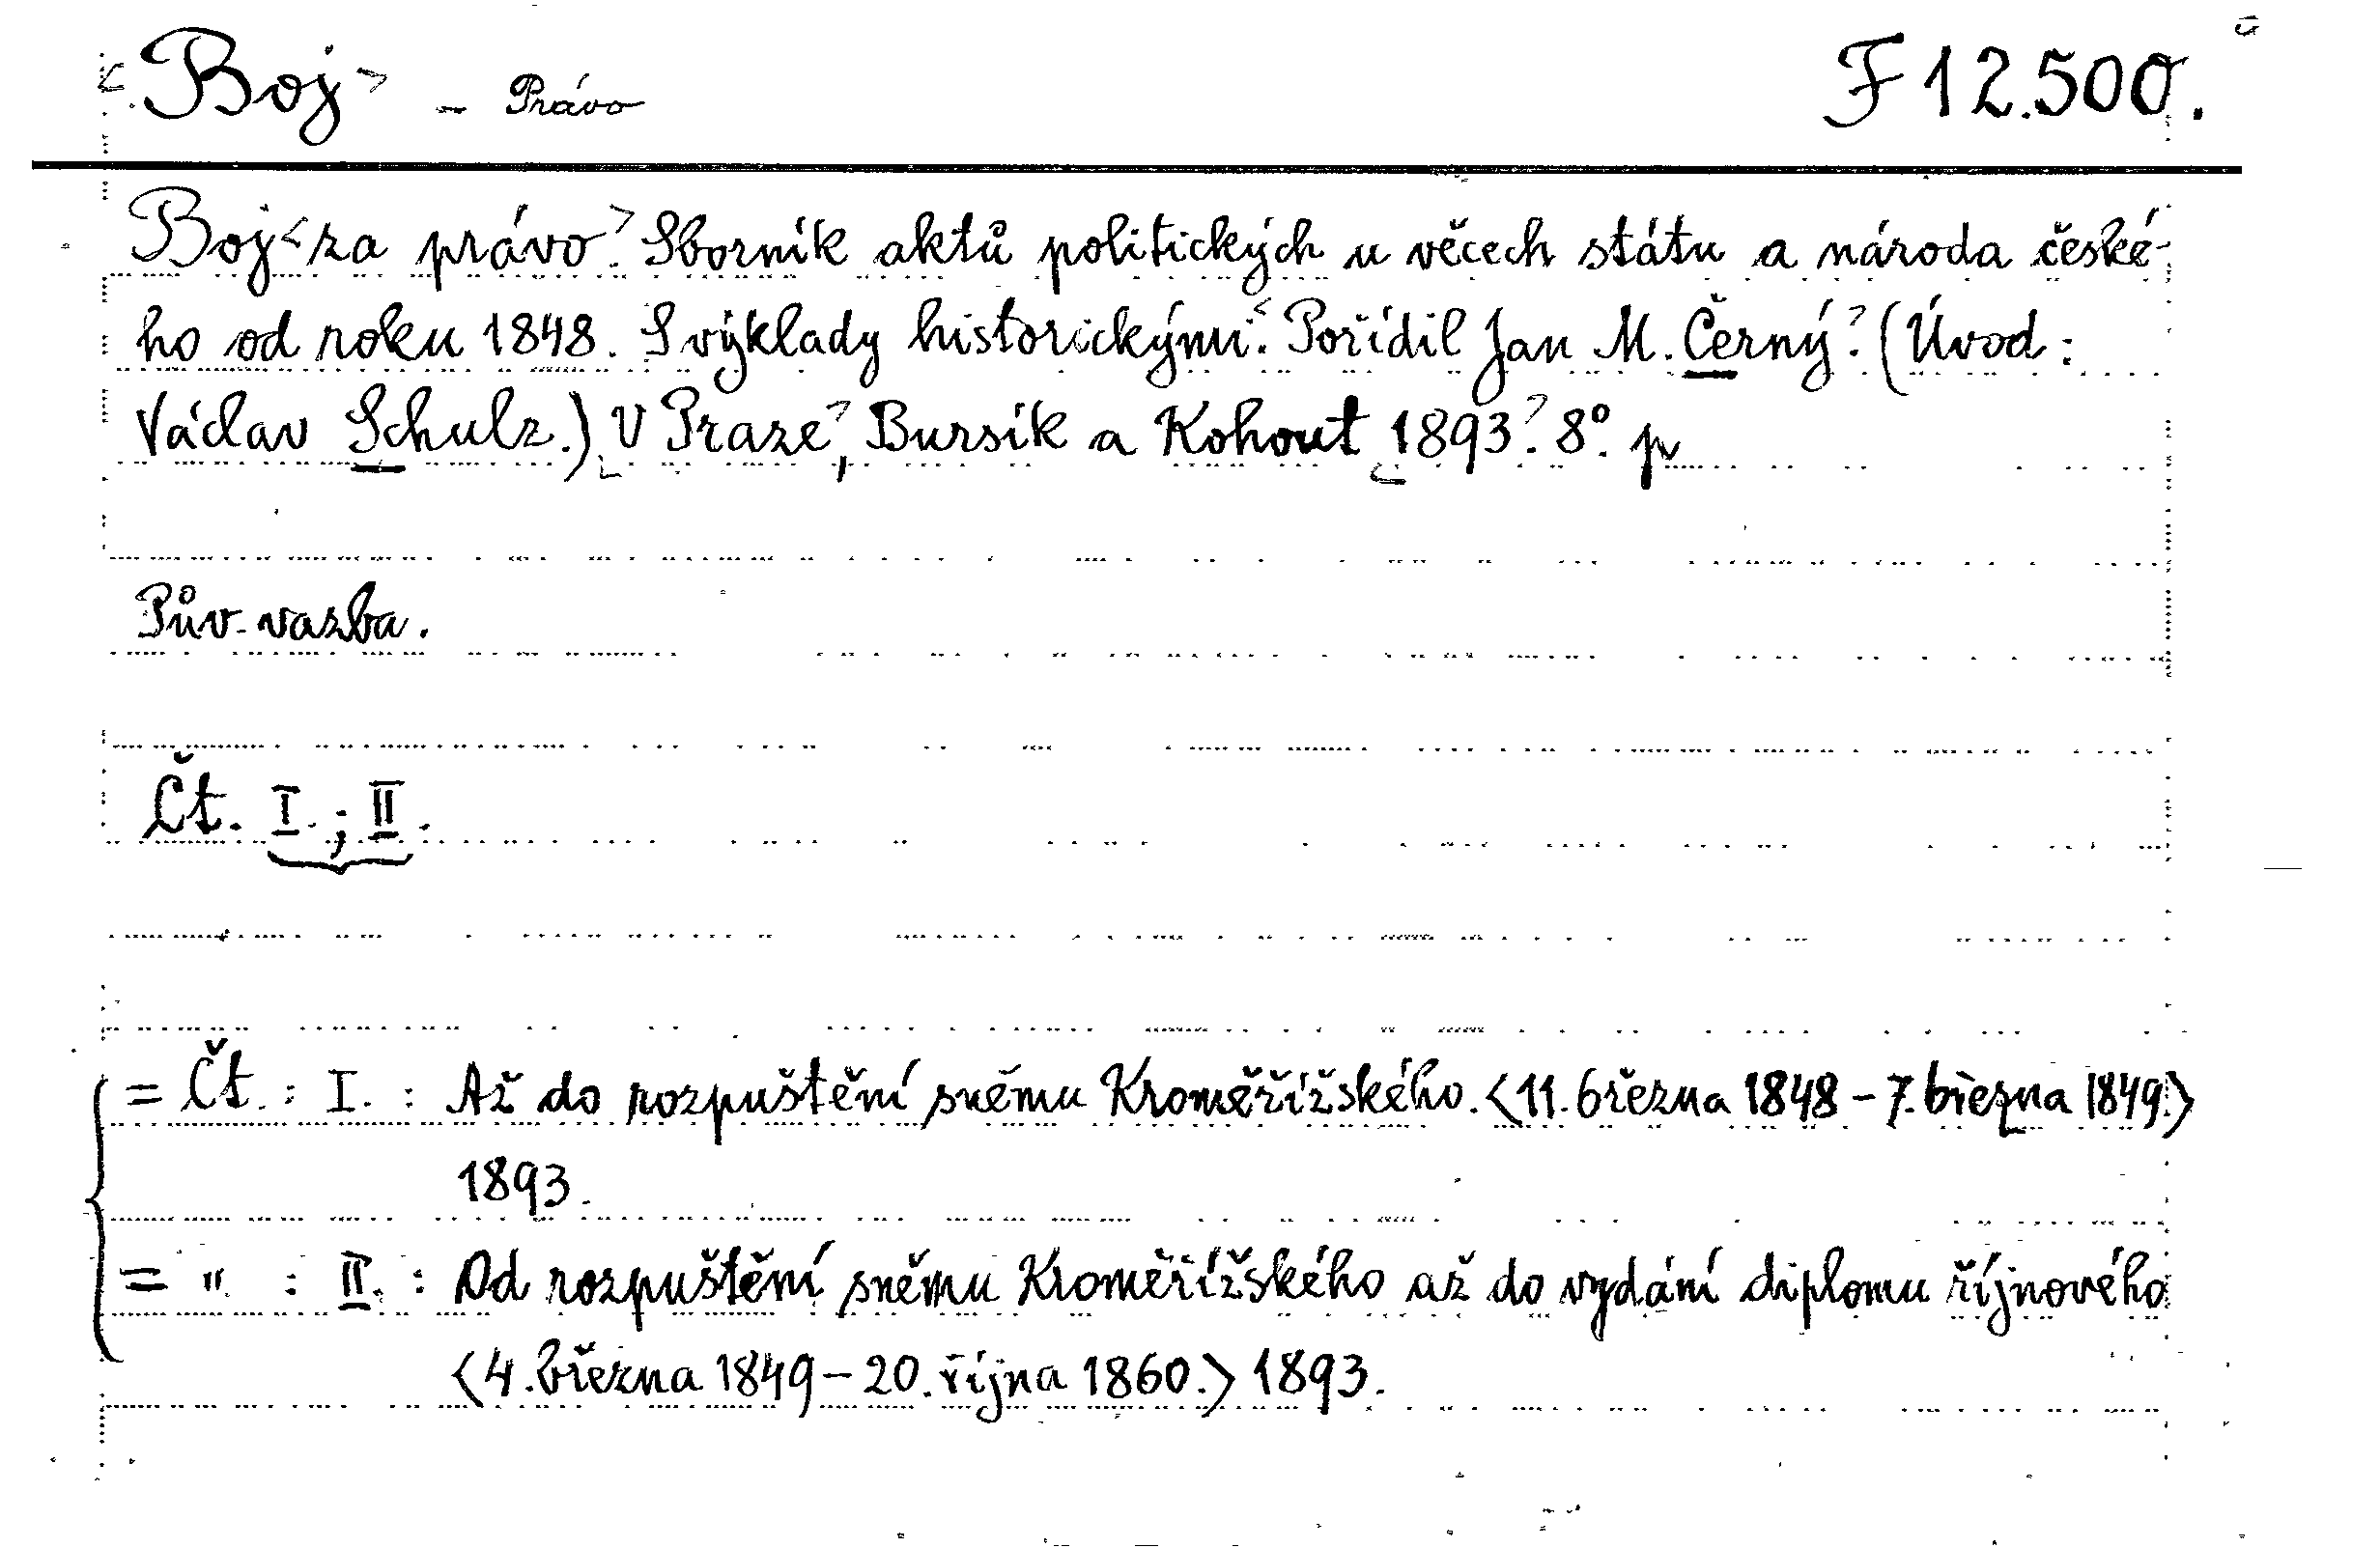 <Boj> – Právo F 12.500.
Boj <za právo>. Sborník aktů politických u věcech státu a národa české-
ho od roku 1848. S výklady historickými. <Pořídil Jan M. Černý>. (Úvod:
Václav Schulz.) V Praze, Bursík a Kohout 1893. 8º. p
Pův. vazba.
Čt. I.; II.
= Čt. : I. : Až do rozpuštění sněmu Kroměřížského. <11. března 1848 – 7. března 1849.>
1893.
= " : II. : Od rozpuštění sněmu Kroměřížského až do vydání diplomu říjnového
<4. března 1849 – 20. října 1860.> 1893.